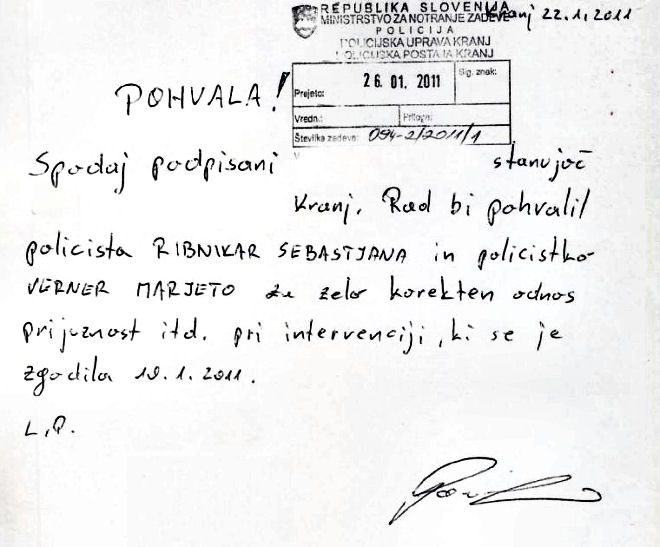 REPUBLIKA SLOVENIJA
MINISTRSTVO ZA NOTRANJE ZADEVE
Kranj 22.1.2011
POLICIJA
POLICIJSKA UPRAVA KRANJ
POLICIJSKA POSTAJA KRANJ
Prejeto: 26. 01. 2011 Sig. znak:
Vredn.: Priloge:
Številka zadeve: 094-2/2011/1
POHVALA!
Spodaj podpisani stanujoč
Kranj. Rad bi pohvalil
policista RIBNIKAR SEBASTJANA in policistko
VERNER MARJETO za zelo korekten odnos
prijaznost itd. pri intervenciji, ki se je
zgodila 19.1.2011.
L.P.